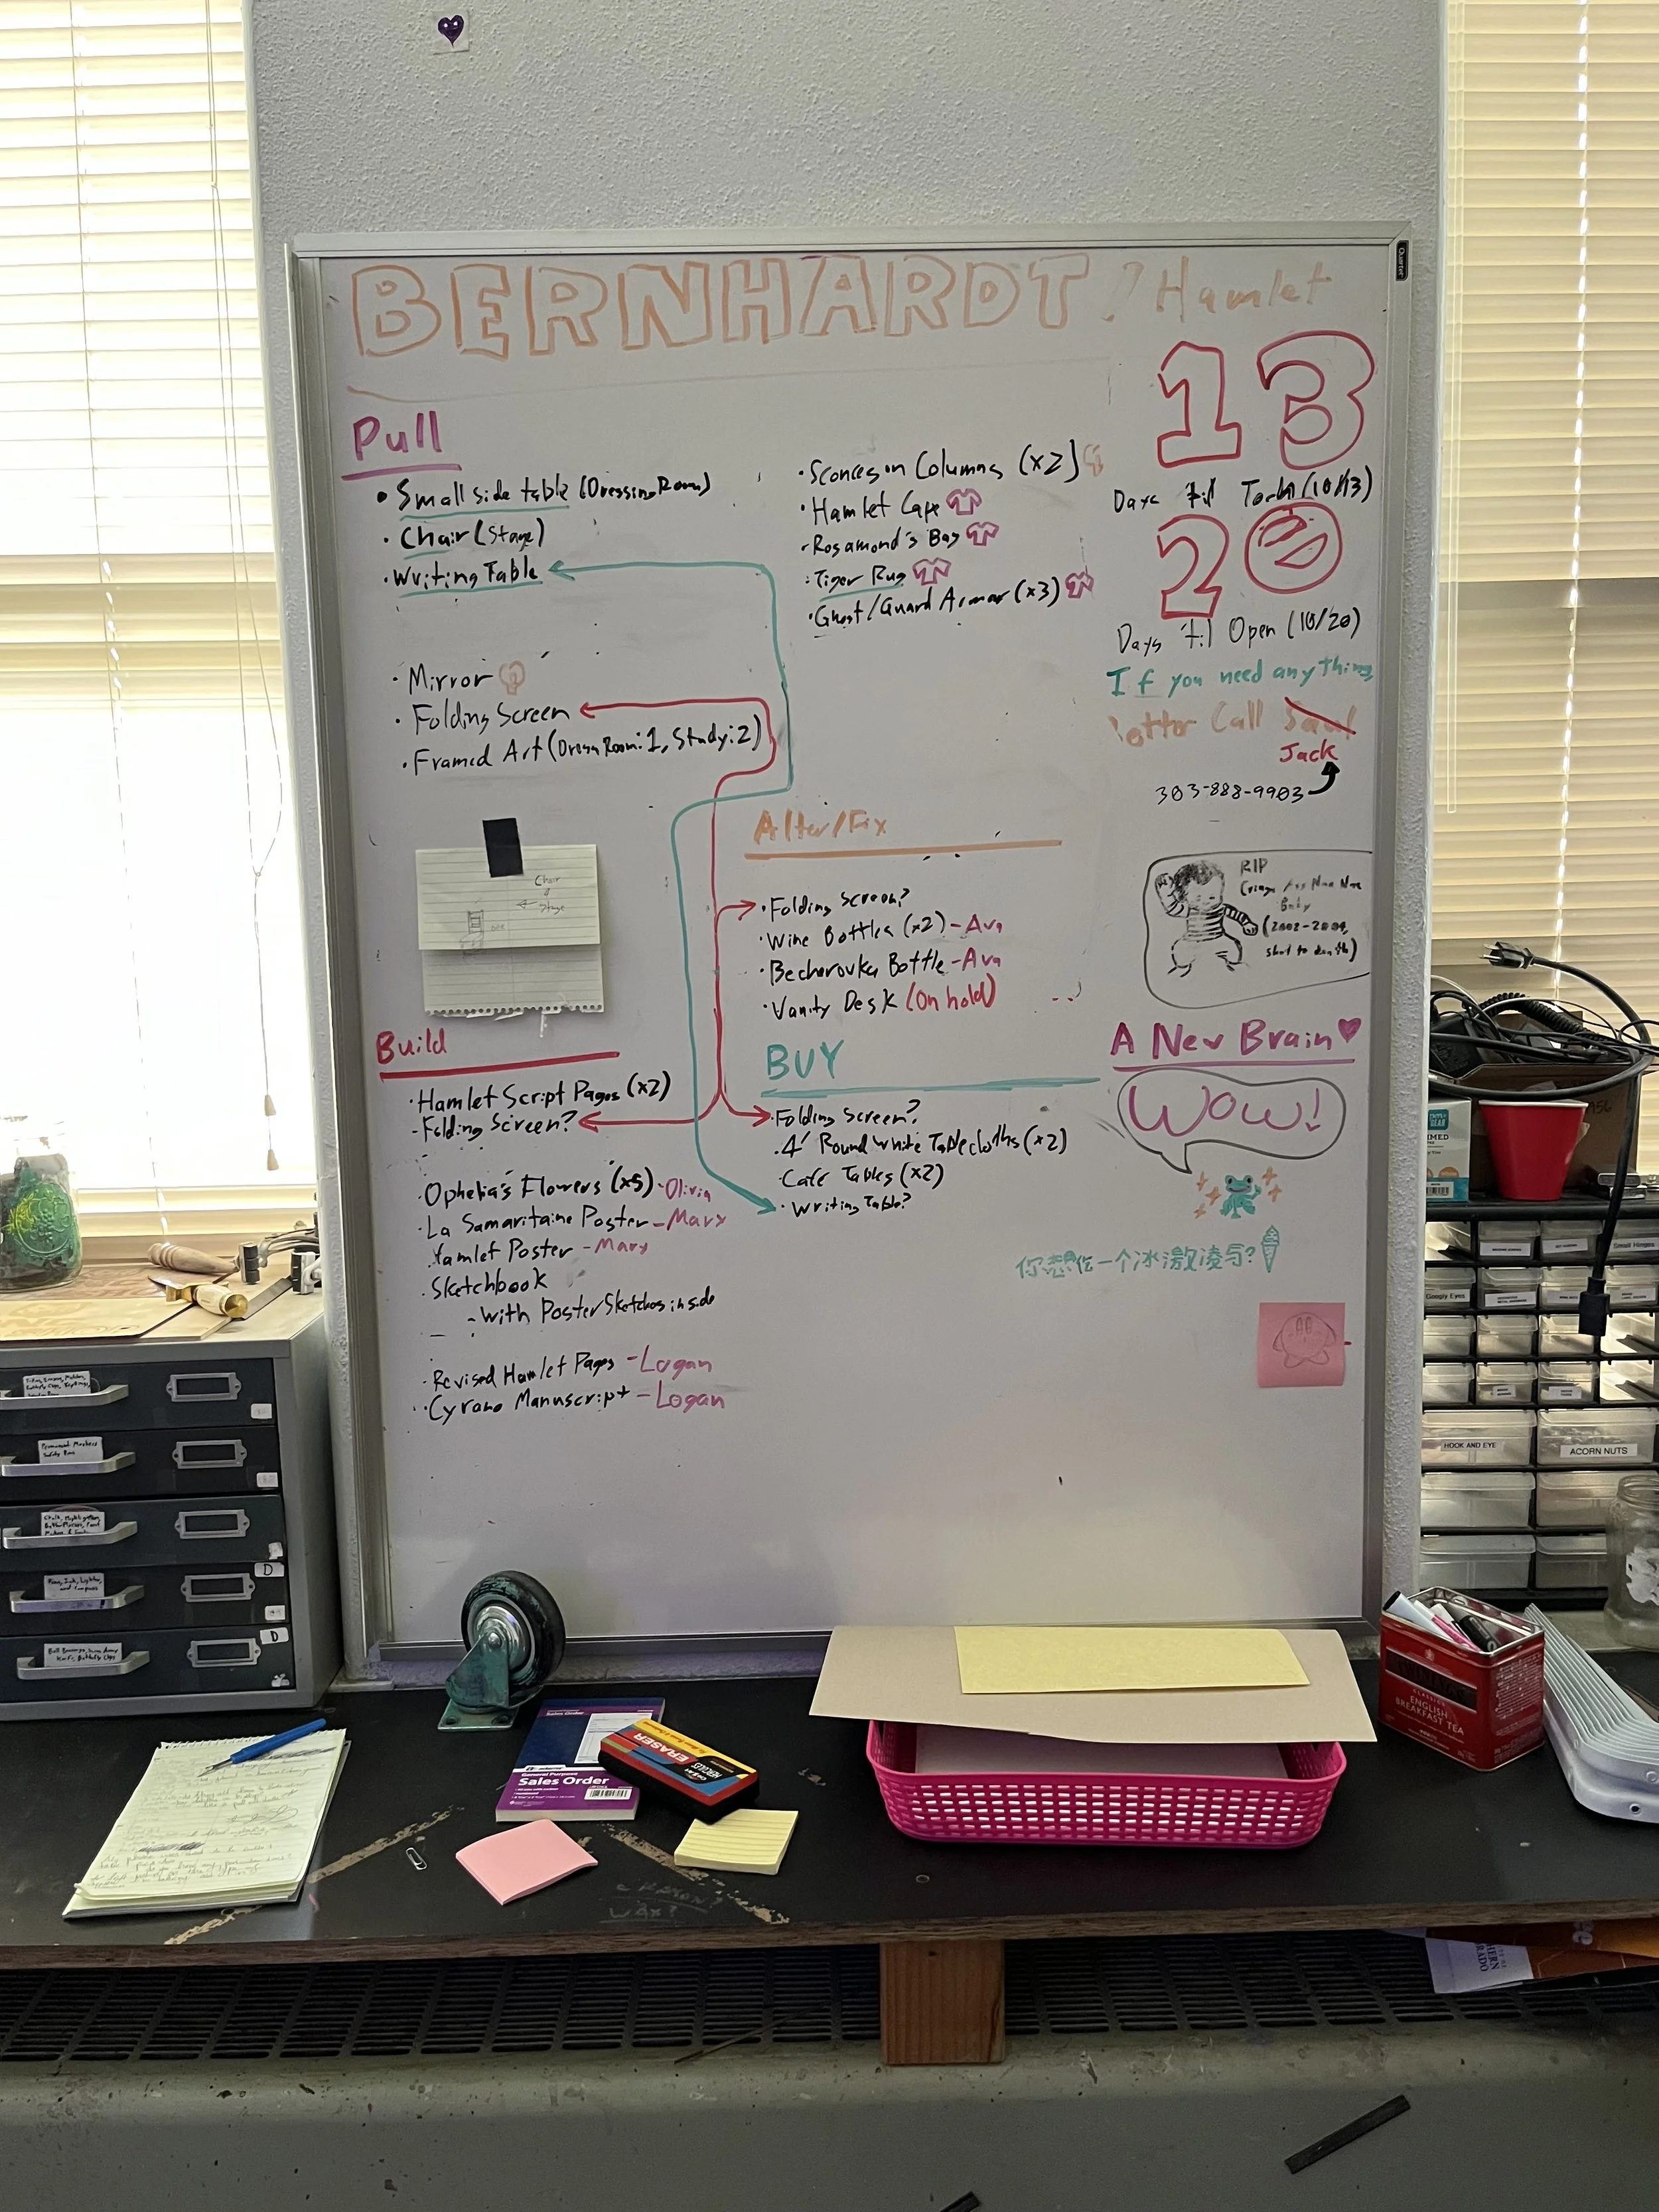 BERNHARDT / Hamlet
Quartet
13
Days 'til Tech (10/13)
20
Days 'til Open (10/20)
If you need anything
Better Call Saul
Jack
303-888-9903
Pull
• Small side table (Dressing Room)
• Chair (Stage)
• Writing Table
• Mirror
• Folding Screen
• Framed Art (Dress Room: 1, Study: 2)
• Sconces on Columns (x2)
• Hamlet Cape
• Rosamond's Bag
• Tiger Rug
• Ghost/Guard Armor (x3)
Chair
Stage
Alter/Fix
• Folding Screen?
• Wine Bottles (x2) - Ava
• Becherovka Bottle - Ava
• Vanity Desk (On hold)
RIP
Baby
(2002-2004,
shot to death)
Build
• Hamlet Script Pages (x2)
- Folding Screen?
• Ophelia's Flowers (x5) - Olivia
• La Samaritaine Poster - Mary
Hamlet Poster - Mary
• Sketchbook
- with Poster Sketches inside
• Revised Hamlet Pages - Logan
• Cyrano Manuscript - Logan
BUY
• Folding Screen?
• 4' Round White Tablecloths (x2)
• Cafe Tables (x2)
• Writing Table?
A New Brain
WOW!
你想吃一个冰激凌吗?
Googly Eyes
Small Hinges
HOOK AND EYE
ACORN NUTS
D
D
Sales Order
General Purpose
Sales Order
ERASER
CLASSICS
ENGLISH
BREAKFAST TEA
WAX?